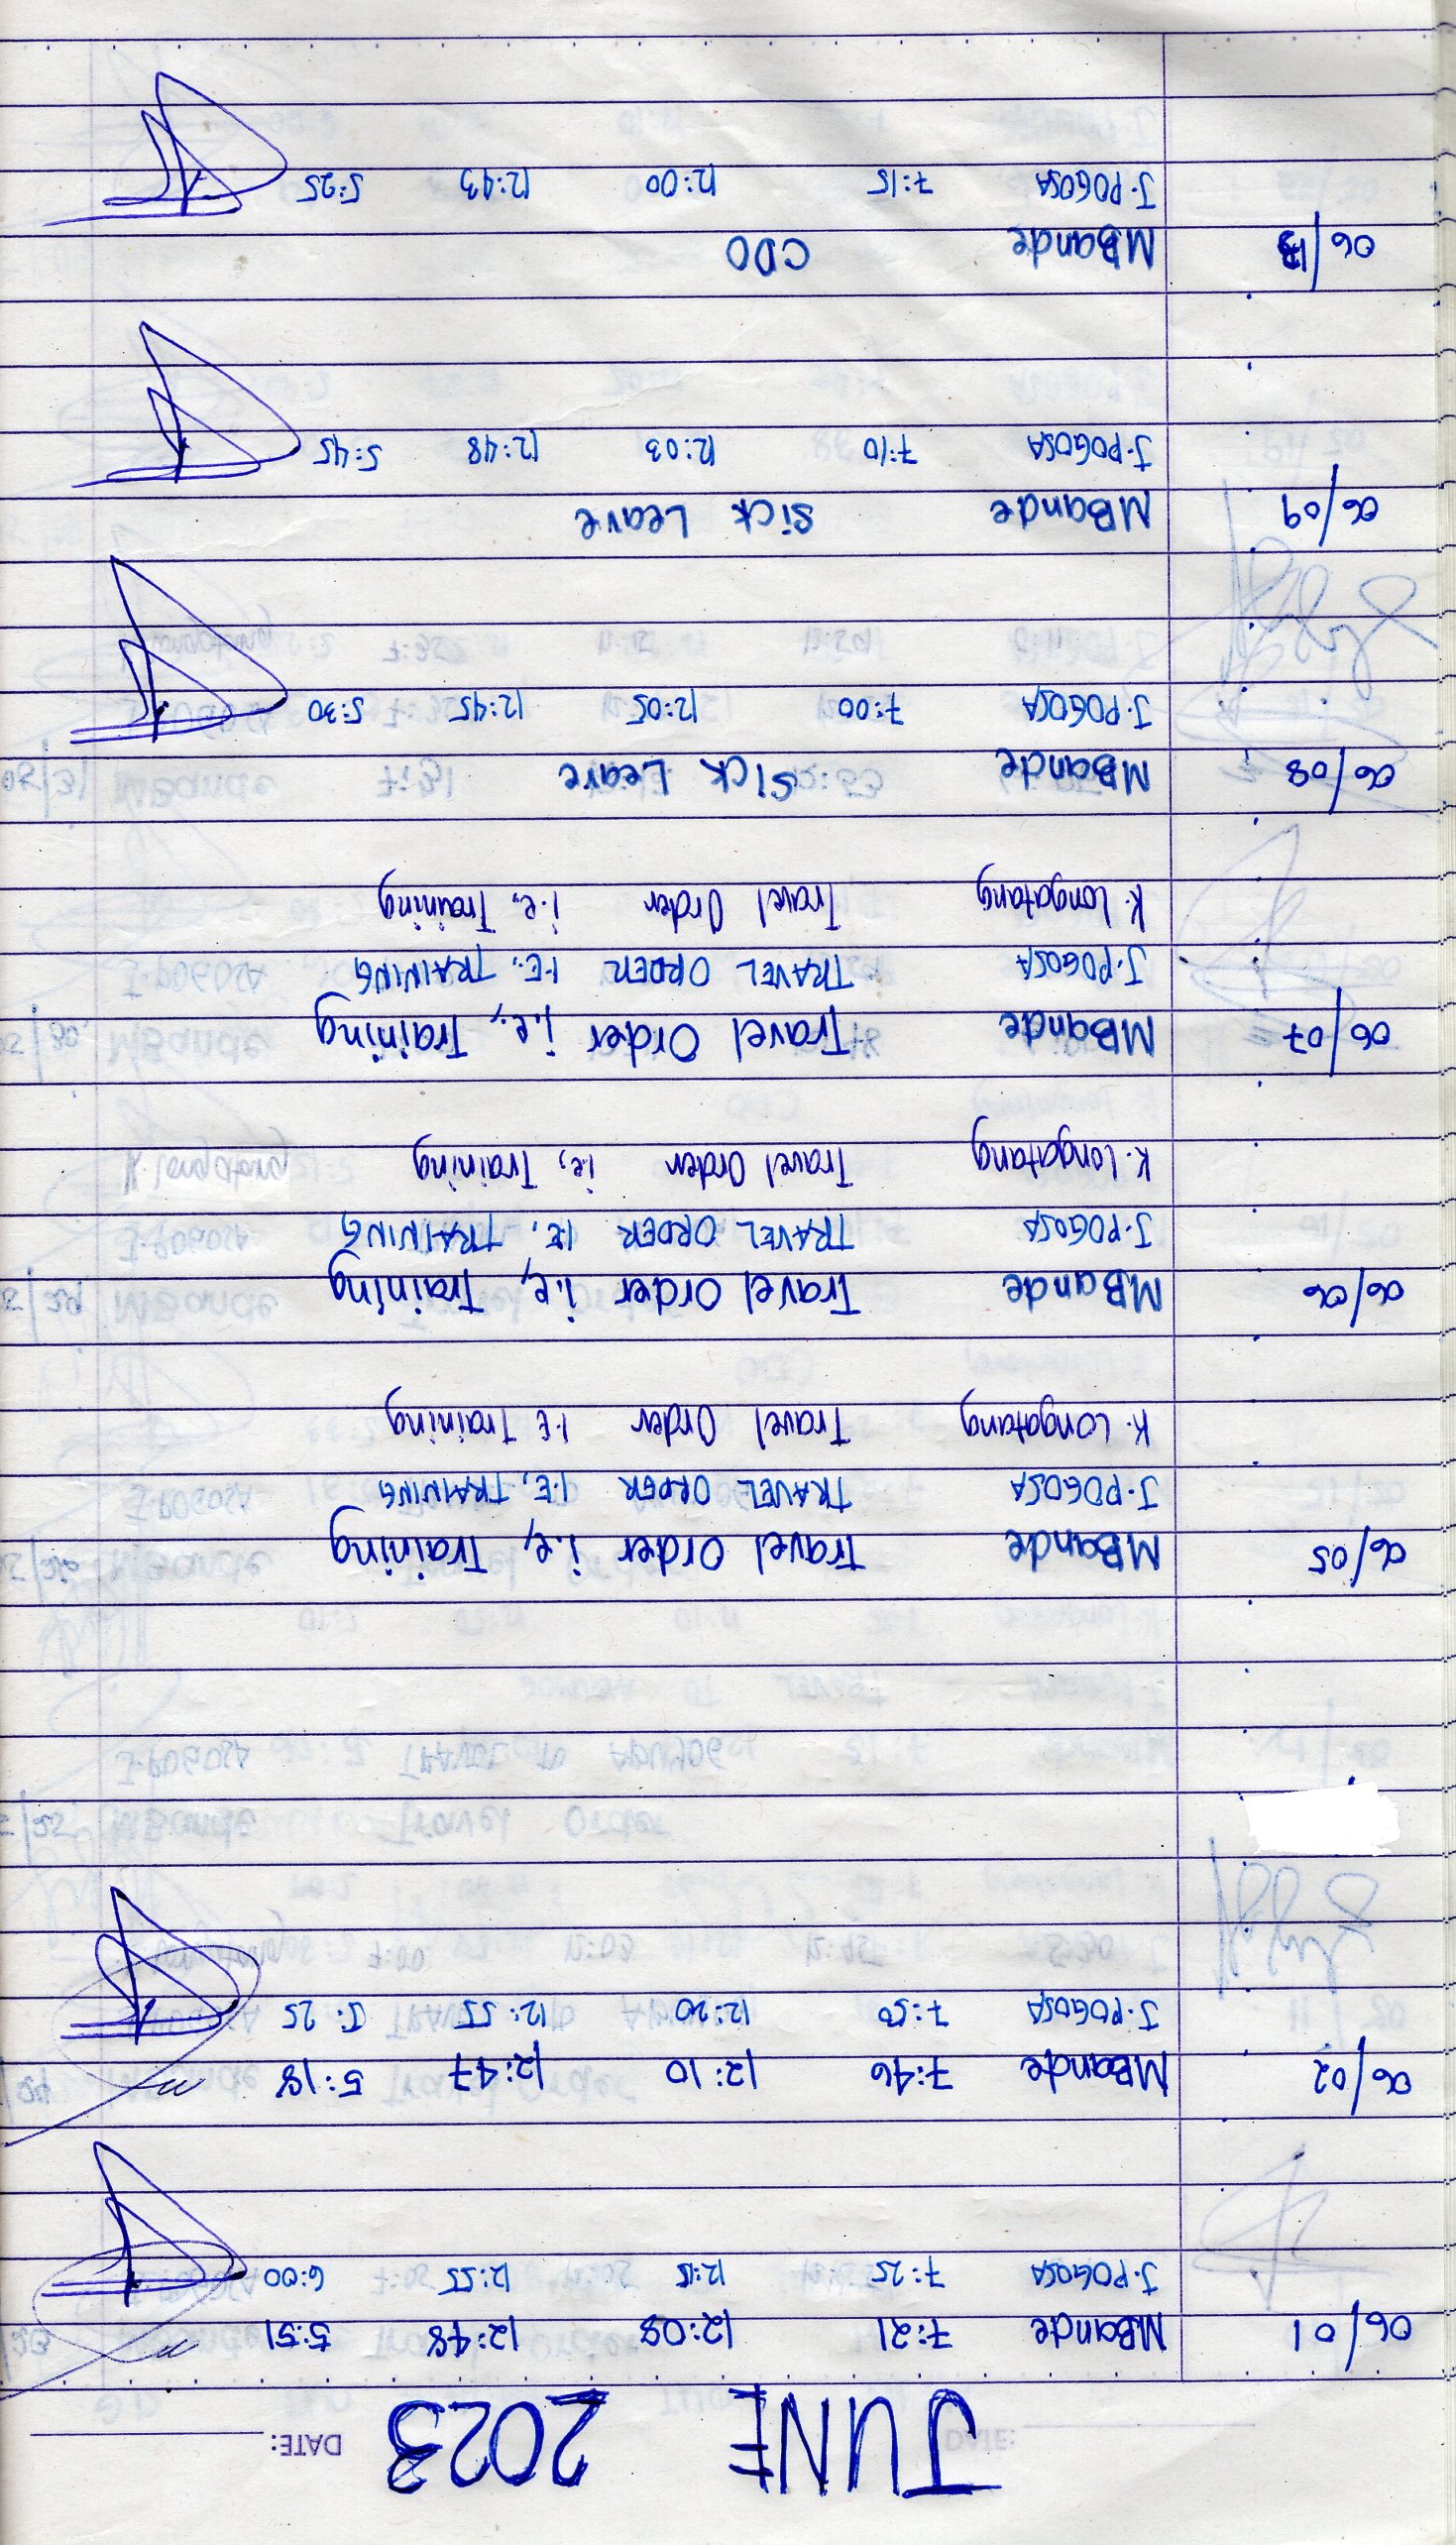 JUNE 2023 DATE:
06/01 MBande 7:21 12:08 12:48 5:51
J.POGOSA 7:25 12:15 12:55 6:00
06/02 MBande 7:46 12:10 12:47 5:18
J.POGOSA 7:50 12:20 12:55 5:25
06/05 MBande Travel Order i.e, Training
J.POGOSA TRAVEL ORDER I.E, TRAINING
K. Longatang Travel Order I.E Training
06/06 MBande Travel Order i.e, Training
J.POGOSA TRAVEL ORDER I.E, TRAINING
K. Longatang Travel Order i.e, Training
06/07 MBande Travel Order i.e, Training
J.POGOSA TRAVEL ORDER I.E, TRAINING
K. Longatang Travel Order i.e, Training
06/08 MBande Sick Leave
J.POGOSA 7:00 12:05 12:45 5:30
06/09 MBande Sick Leave
J.POGOSA 7:10 12:03 12:48 5:45
06/13 MBande CDO
J.POGOSA 7:15 12:00 12:43 5:25